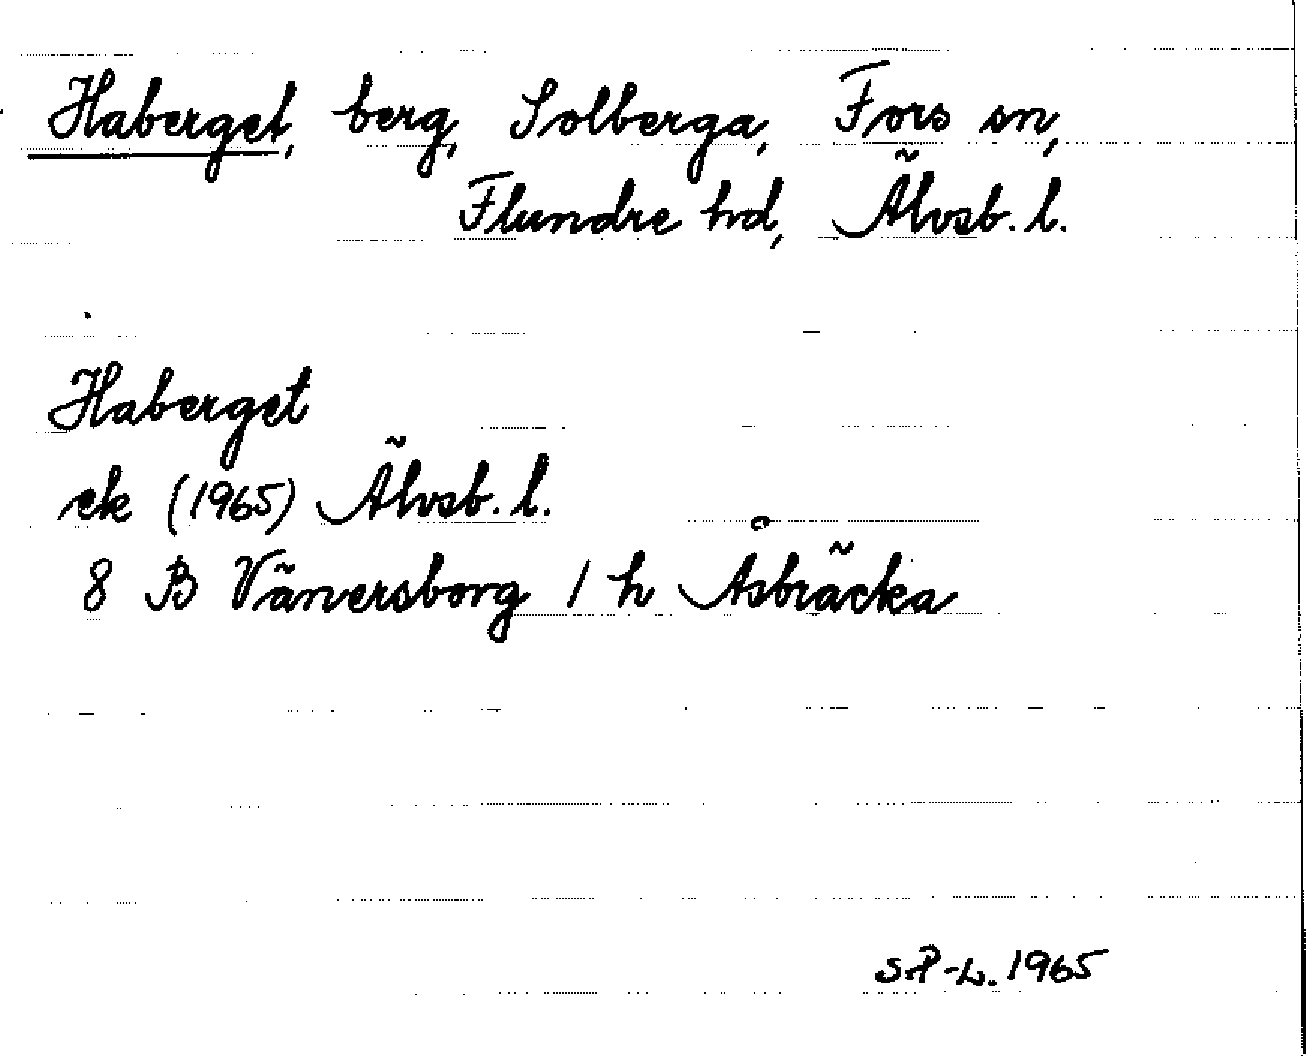 Haberget, berg, Solberga, Fors sn,
Flundre hd, Älvsb. l.
Haberget
ek (1965) Älvsb. l.
8 B Vänersborg 1 h Åsbräcka
S.P-L. 1965